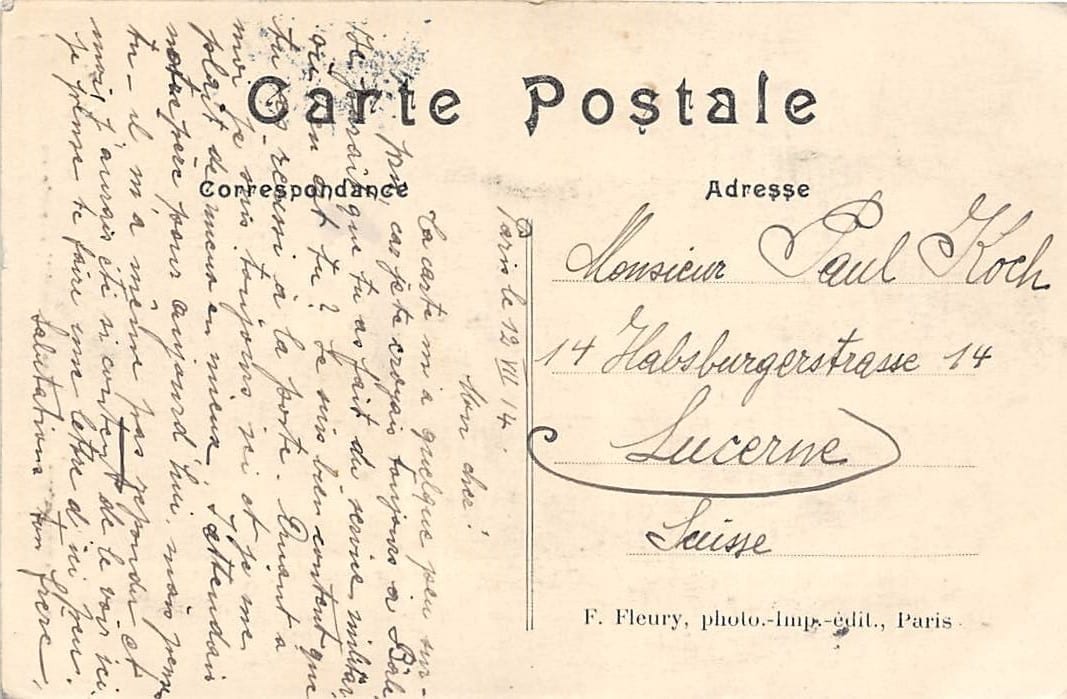 Carte Postale
Correspondance
Adresse
Paris le 12 VII 14.
Mon cher!
Ta carte m'a quelque peu sur-
pris, car je te croyais toujours à Bâle
Je que tu as fait du service militair
où en es tu? Je suis bien content que
tu à la porte. Quant a
moi je suis toujours ici et je me
plait de mieux en mieux. J'attendais
notre père pour aujourd'hui, mais pense
tu - il m'a même pas repondu et
moi, j'aurais été si content de le voir ici.
je pense te faire une lettre d'ici peu.
Salutations ton frère,
Monsieur Paul Koch
14 Habsburgerstrasse 14
Lucerne
Suisse
F. Fleury, photo.-Imp.-édit., Paris